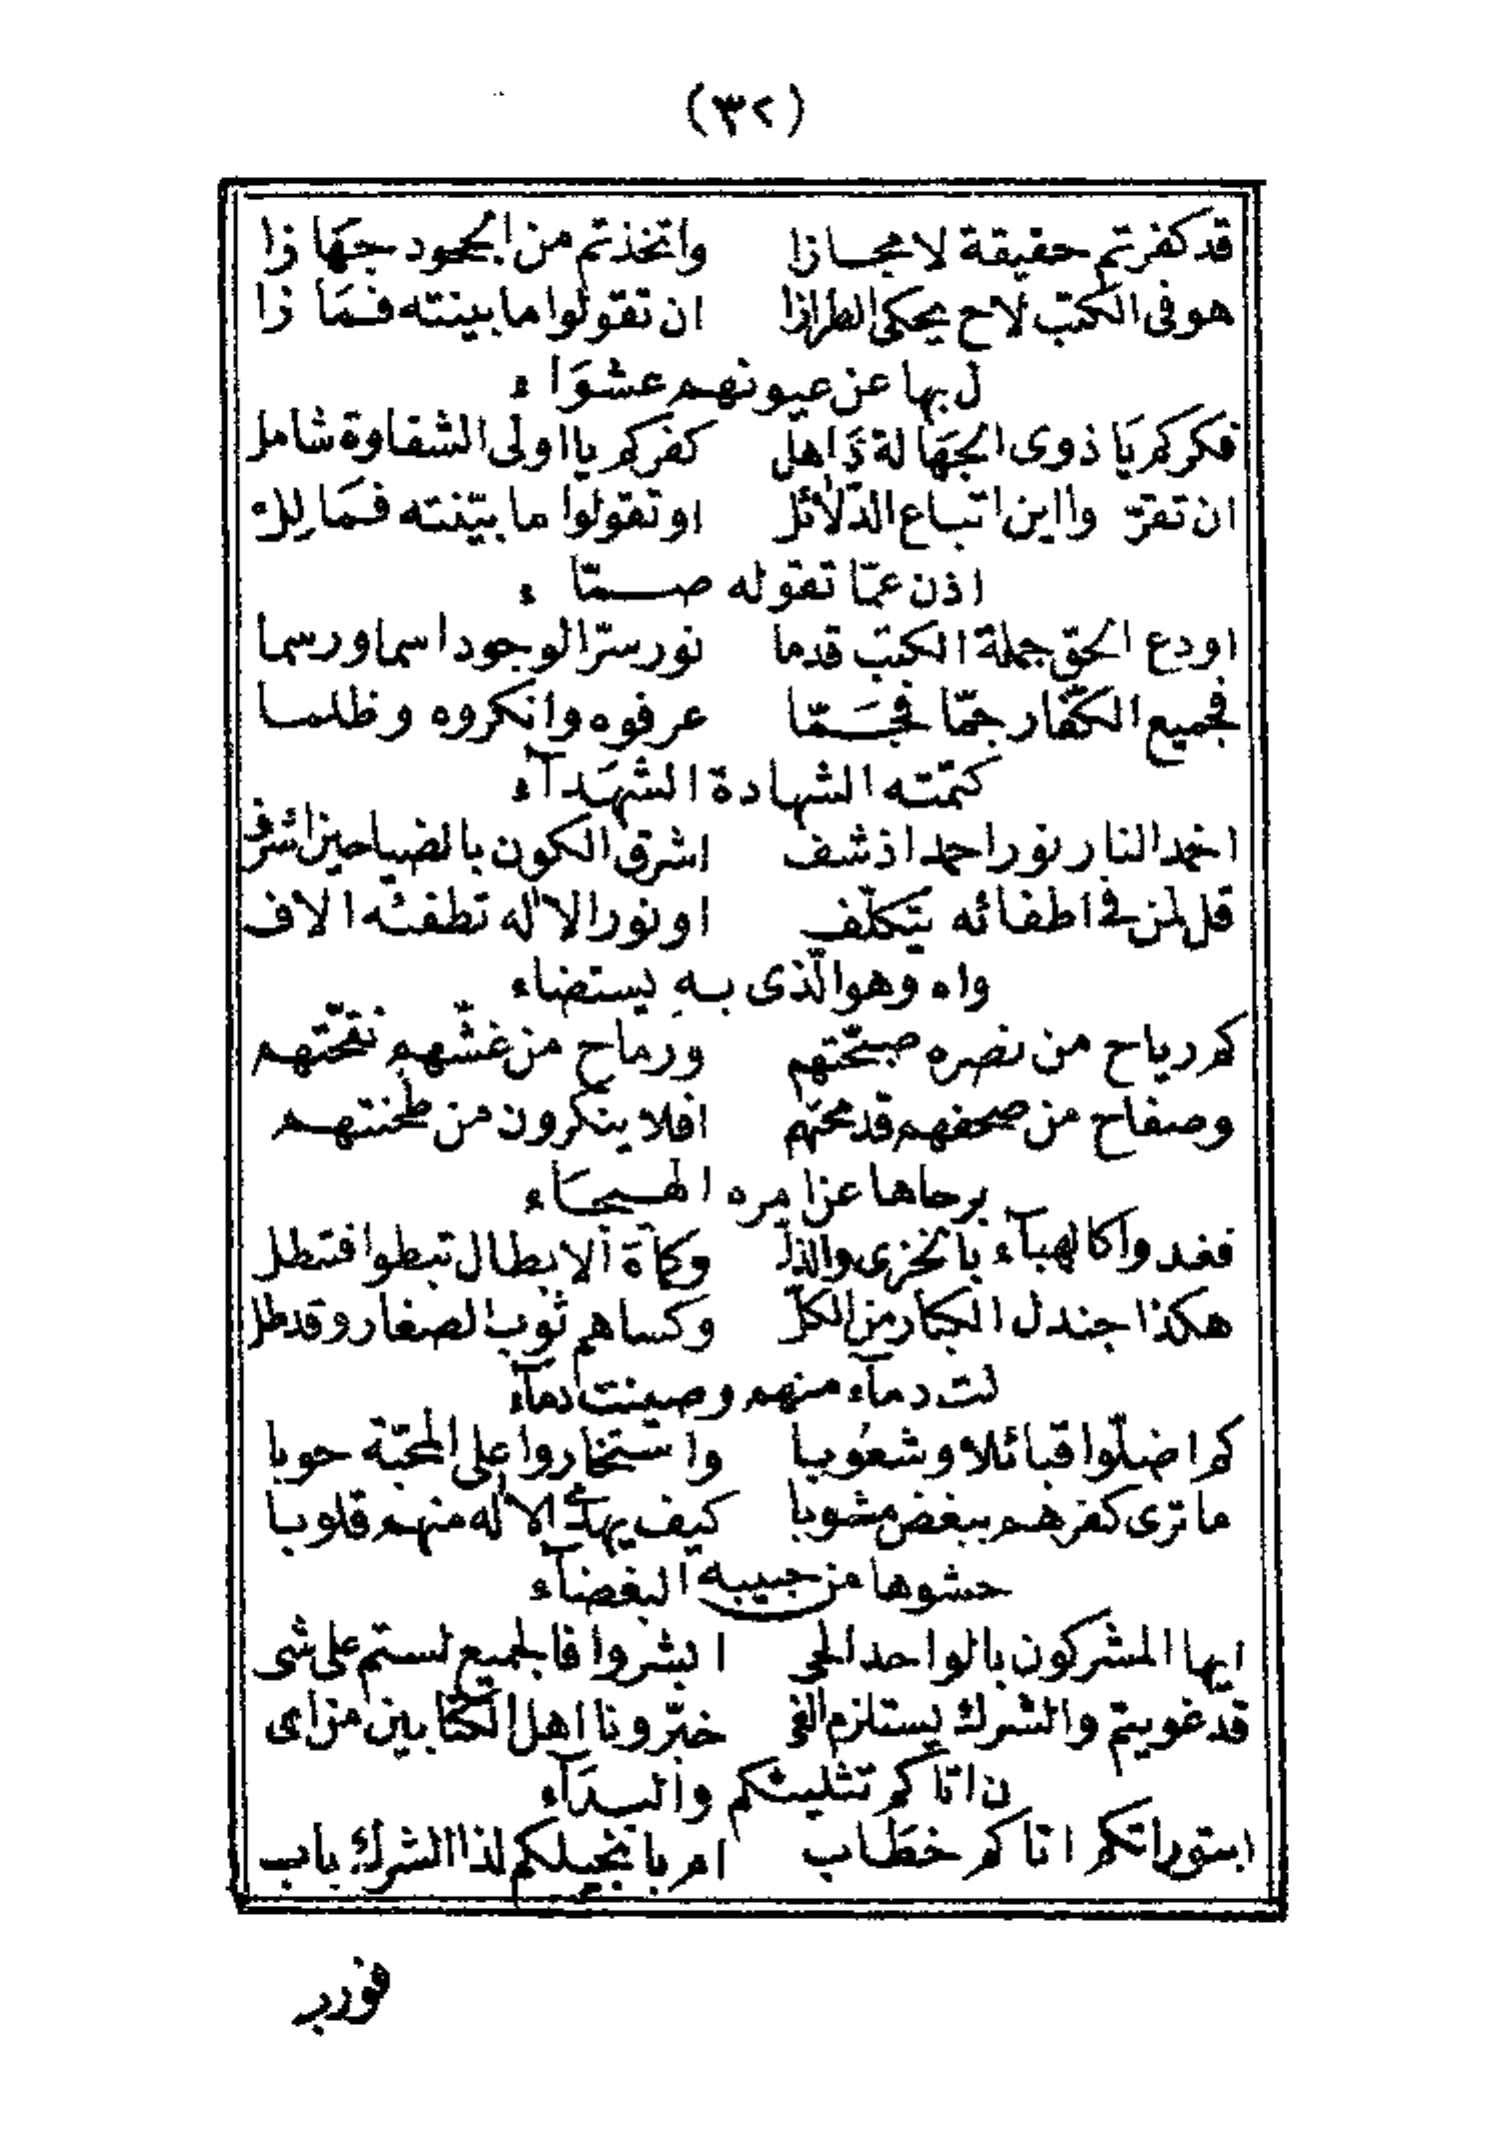 (٣٢)
قد كفرتم حقيقة لا مجازا واتخذتم من الجحود جهازا
هو فى الكتب لاح يحكى الطرازا ان تقولوا ما بينته فما زا
ل بها عن عيونهم عشواء
فكركم يا ذوى الجهالة ذاهل كفركم يا اولى الشقاوة شامل
ان تقرّوا اين اتباع الدّلائل او تقولوا ما بيّنته فما لل
اذن عمّا تقوله صمّاء
اودع الحقّ جملة الكتب قدما نور سرّ الوجود اسما ورسما
فجميع الكفّار جمّا فجمّا عرفوه وانكروه وظلما
كتمته الشهادة الشهدآء
اخمد النار نور احمد اذ شف اشرق الكون بالضيا حين اشرف
قل لمن فى اطفائه يتكلّف او نور الاله تطفئه الاف
واه وهو الّذى به يستضاء
كم رياح من نصره صبّحتهم ورماح من غشّهم نقّحتهم
وصفاح من صحفهم قد محتهم افلا ينكرون من طحنتهم
برحاها عن امره الهيجاء
فغدوا كالهبآء بالخزى والذل وكماة الابطال تبطوا فتطل
هكذا جندل الكبار من الكلّ وكساهم ثوب الصغار وقد طل
لت دمآء منهم وصينت دمآء
كم اضلّوا قبائلا وشعوبا واستخاروا على المحبّة حوبا
ما ترى كفرهم ببغض مشوبا كيف يهدى الاله منهم قلوبا
حشوها من حبيبه البغضآء
ايها المشركون بالواحد الحى ابشروا فالجميع لستم على شى
قد غويتم والشرك يستلزم الغى خبّرونا اهل الكتابين من اى
ن اتاكم تثليثكم والبدآء
ابتوراتكم اتاكم خطاب ام بانجيلكم لذا الشرك باب
فورب